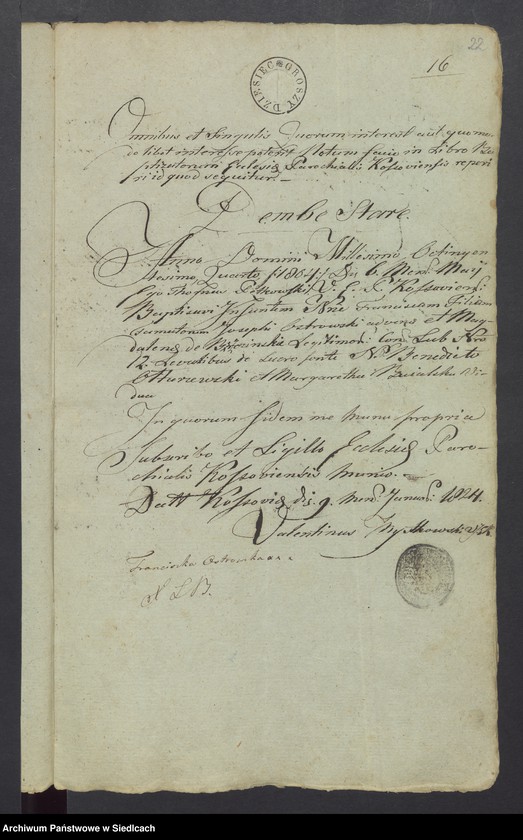 22
16
DZIESIĘC GROSZY
Omnibus et Singulis Quorum interest aut quomo
dolibet interesse poterit Notum facio in Libro Ba
ptizatorum Eclesiæ Parochiallis Kossoviensis reperi
ri id quod sequitur
Dembe Stare
Anno Domini Millesimo Octingen
tesimo Quarto /1804/ Die 6 Mens: Maij
Ego Thomas V: E: K Kossoviensis
Baptisavi Infantem Nne Franciscam Filiam
Josephi Ostrowski et Mag
dalenæ de Legitimorum Con: Sub Nro
12. Levantibus de Sacro fonte N. Benedicto
et Margaritha Vi
dua
In quorum fidem me manu propria
Subscribo et Sigillo Eclesiæ Paro-
chialis Kossoviensis munio.
Datt Kossoviæ die 9 Mens Januarii 1824.
Valentinus
Franciszka Ostrowska
L B.
Archiwum Państwowe w Siedlcach